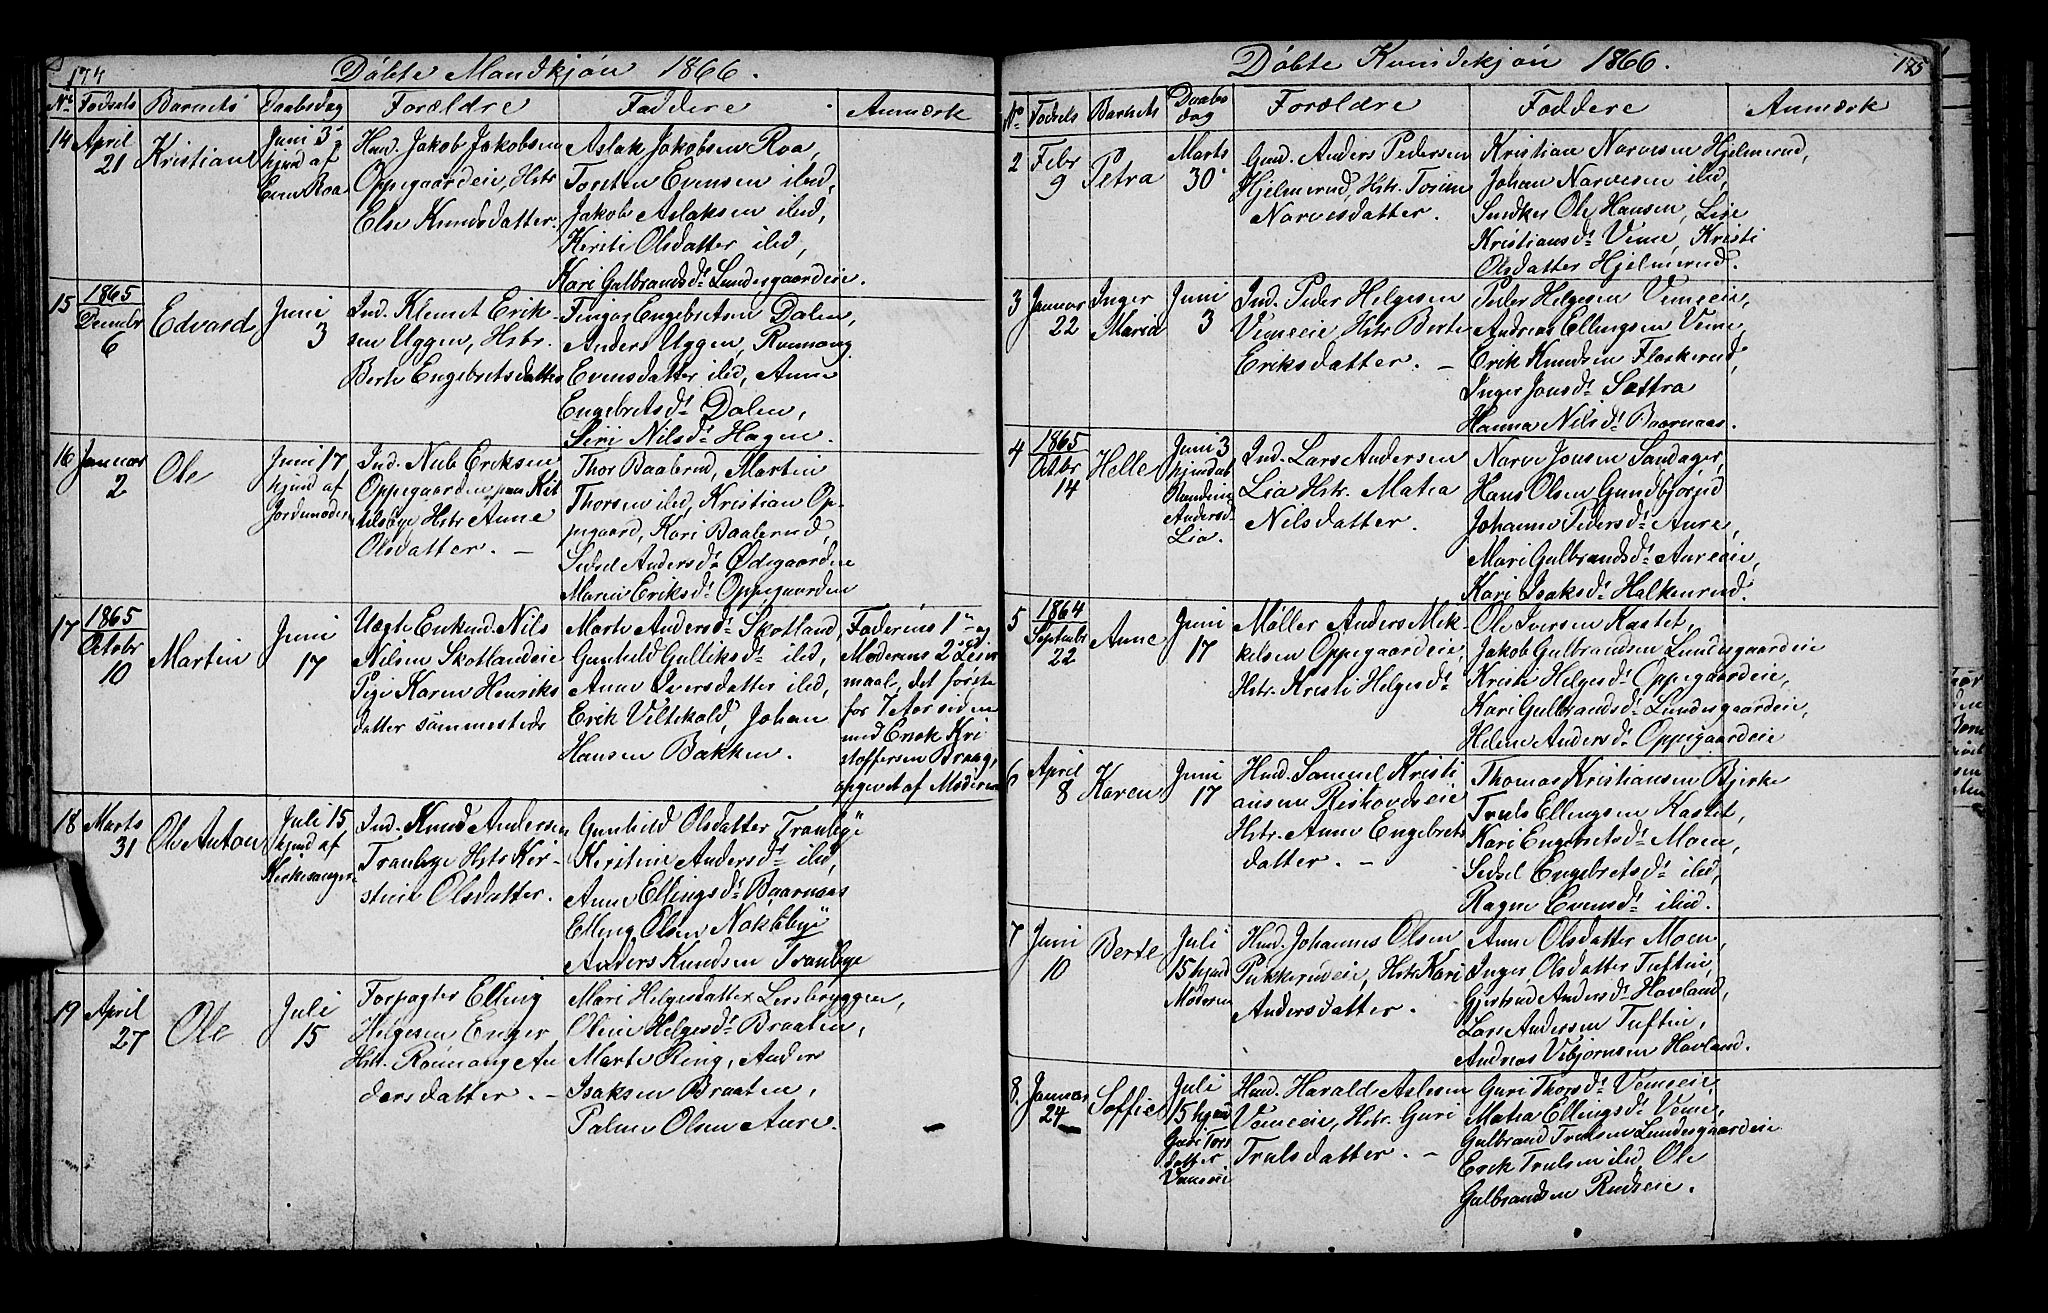 174
Døbte Mandkjøn 1866.
No Fødsels Barnets Daabsdag Forældre Faddere Anmærk
14 April 21 Kristian Juni 3 hjmd af Even Roa
Hmd. Jakob Jakobsen
Oppegaardeie, Hstr.
Else Knudsdatter.
Aslak Jakobsen Roa,
Torsten Evensen ibid,
Jakob Aslaksen ibid,
Kirsti Olsdatter ibid,
Kari Gulbrandsdr. Lundesgaardeie.
15 1865 Decembr 6 Edvard Juni 3
Ind. Klemet Erik-
sen Uggen, Hstr.
Berte Engebretsdatter
Fingar Engebretsen Dalen,
Anders Uggen, Rønnoug
Evensdatter ibid, Anne
Engebretsdr. Dalen,
Siri Nilsdr. Hagen.
16 Januar 2 Ole Juni 17 hjmd af Jordmoder
Ind. Nils Eriksen
Oppegaarden paa Kit
tilsbye Hstr. Anne
Olsdatter. –
Thor Baalerud, Martin
Thorsen ibid, Kristian Op-
pegaard, Kari Baalerud,
Sidsel Andersdr. Ødegaarden
Maren Eriksdr. Oppegaarden
17 1865 Octobr 10 Martin Juni 17
Uægte Enkemd. Nils
Nilsen Skotlandeie
Pige Karen Henriks
datter sammesteds
Marte Andersdr. Skotland
Gunhild Gulliksdr. ibid,
Anne Iversdatter ibid,
Erik Viltekold, Johan
Hansen Bakken.
Faderens 1ste og
Moderens 2det Leier
maal, det første
for 7 Aar siden
med Enok Kri
stoffersen Braag,
opgivet af Moderen
18 Marts 31 Ole Anton Juli 15 hjmd af Kirkesanger
Ind. Knud Andersen
Tranbye Hstr. Kir-
stine Olsdatter.
Gunhild Olsdatter Tranbye
Kirstine Andersdr. ibid,
Anne Ellingsdr. Baarnaas
Elling Olsen Nakkbye
Anders Knudsen Tranbye
19 April 27 Ole Juli 15
Forpagter Elling
Helgesen Enger
Hstr. Rønnaug An
dersdatter. –
Mari Helgesdatter Lersbryggen,
Oline Helgesdr. Braaten,
Marte Ring, Anders
Isaksen Braaten,
Palme Olsen Aure.
175
Døbte Kvindekjøn 1866.
No Fødsels Barnets Daabsdag Forældre Faddere Anmærk
2 Febr 9 Petra Marts 30
Gmd. Anders Pedersen
Hjelmerud, Hstr. Torine
Narvesdatter.
Kristian Narvesen Hjelmerud,
Johan Narvesen ibid,
Snedker Ole Hansen, Lise
Kristiansdr. Veme, Kristi
Olsdatter Hjelmerud.
3 Januar 22 Inger Maria Juni 3
Ind. Peder Helgesen
Vemeeie Hstr. Berte
Eriksdatter. –
Peder Helgesen Vemeeie,
Andreas Ellingsen Veme,
Erik Knudsen Flaskerud,
Inger Jonsdr. Sættra
Hanna Nilsdr. Baarnaas.
4 1865 Octbr 14 Helle Juni 3 hjmd af Andersdr Lia.
Ind. Lars Andersen
Lia Hstr. Matea
Nilsdatter.
Narve Jonsen Sandager,
Hans Olsen Gundbjørud
Johanne Pedersdr. Aure,
Mari Gulbrandsdr. Aureeie,
Kari Isaksdr. Halkenrud.
5 1864 Septembr 22 Anne Juni 17
Møller Anders Mik-
kelsen Oppegaardeie,
Hstr. Kristi Helgesdr.
Ole Iversen Kastet,
Jakob Gulbrandsen Lundesgaardeie
Kristi Helgesdr. Oppegaardeie,
Kari Gulbrandsdr. Lundesgaardeie,
Helene Andersdr. Oppegaardeie
6 April 8 Karen Juni 17
Hmd. Samuel Kristi
ansen Reskovdseie
Hstr. Anne Engebrets
datter. –
Thomas Kristiansen Bjerke
Truls Ellingsen Kastet,
Kari Engebretsdr. Moen,
Sidsel Engebretsdr. ibid,
Ragne Evensdr. ibid.
7 Juni 10 Berte Juli 15 hjmd Moderen
Hmd. Johannes Olsen
Pukkerudeie, Hstr. Kari
Andersdatter.
Anne Olsdatter Moen,
Inger Olsdatter Tuftin,
Gjertrud Andersdr. Hovland,
Lars Andersen Tuftin,
Andreas Vebjørnsen Hovland.
8. Januar 24 Soffie Juli 15 hjmd Guri Torsdatter Vemeeie
Hmd. Harald Aslesen
Vemeeie, Hstr. Guri
Trulsdatter. –
Guri Thorsdr. Vemeeie,
Matea Ellingsdr. Veme,
Gulbrand Trulsen Lundesgaardeie
Erik Trulsen ibid, Ole
Gulbrandsen Rudseie.